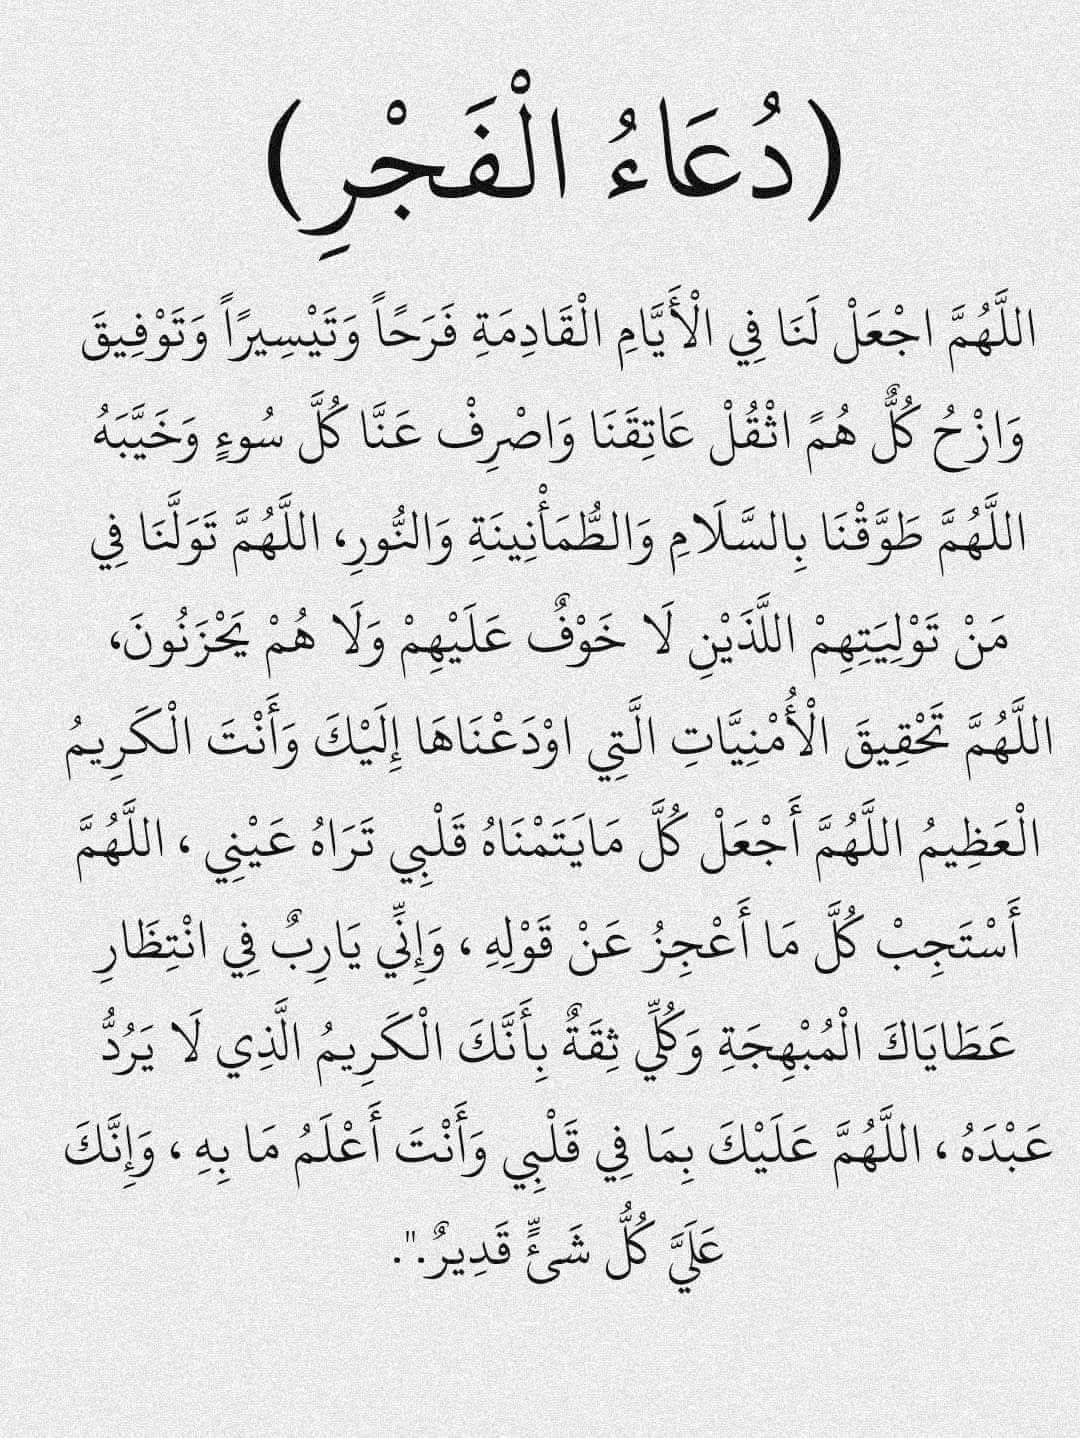 (دُعَاءُ الْفَجْرِ)
اللَّهُمَّ اجْعَلْ لَنَا فِي الْأَيَّامِ الْقَادِمَةِ فَرَحًاً وَتَيْسِيرًاً وَتَوْفِيقَ
وَازْحُ كُلٌّ هُمً اثْقُلْ عَاتِقَنَا وَاصْرِفْ عَنَّا كُلَّ سُوءٍ وَخَيَّبَهُ
اللَّهُمَّ طَوَّقْنَا بِالسَّلَامِ وَالطُّمَأْنِينَةِ وَالنُّورِ، اللَّهُمَّ تَوَلَّنَا فِي
مَنْ تَوْلِيَتِهِمْ اللَّذَيْنِ لَا خَوْفٌ عَلَيْهِمْ وَلَا هُمْ يَحْزَنُونَ،
اللَّهُمَّ تَحْقِيقَ الْأُمْنِيَّاتِ الَّتِي اوْدَعْنَاهَا إِلَيْكَ وَأَنْتَ الْكَرِيمُ
الْعَظِيمُ اللَّهُمَّ أَجْعَلْ كُلَّ مَايَتَمْنَاهُ قَلْبِي تَرَاهُ عَيْنِي ، اللَّهُمَّ
أَسْتَجِبْ كُلَّ مَا أَعْجِزُ عَنْ قَوْلِهِ ، وَإِنِّي يَارِبٌ فِي انْتِظَارِ
عَطَايَاكَ الْمُبْهِجَةِ وَكُلِّي ثِقَةٌ بِأَنَّكَ الْكَرِيمُ الَّذِي لَا يَرُدُّ
عَبْدَهُ ، اللَّهُمَّ عَلَيْكَ بِمَا فِي قَلْبِي وَأَنْتَ أَعْلَمُ مَا بِهِ ، وَإِنَّكَ
عَلَيَّ كُلُّ شَئٍّ قَدِيرٌ.".